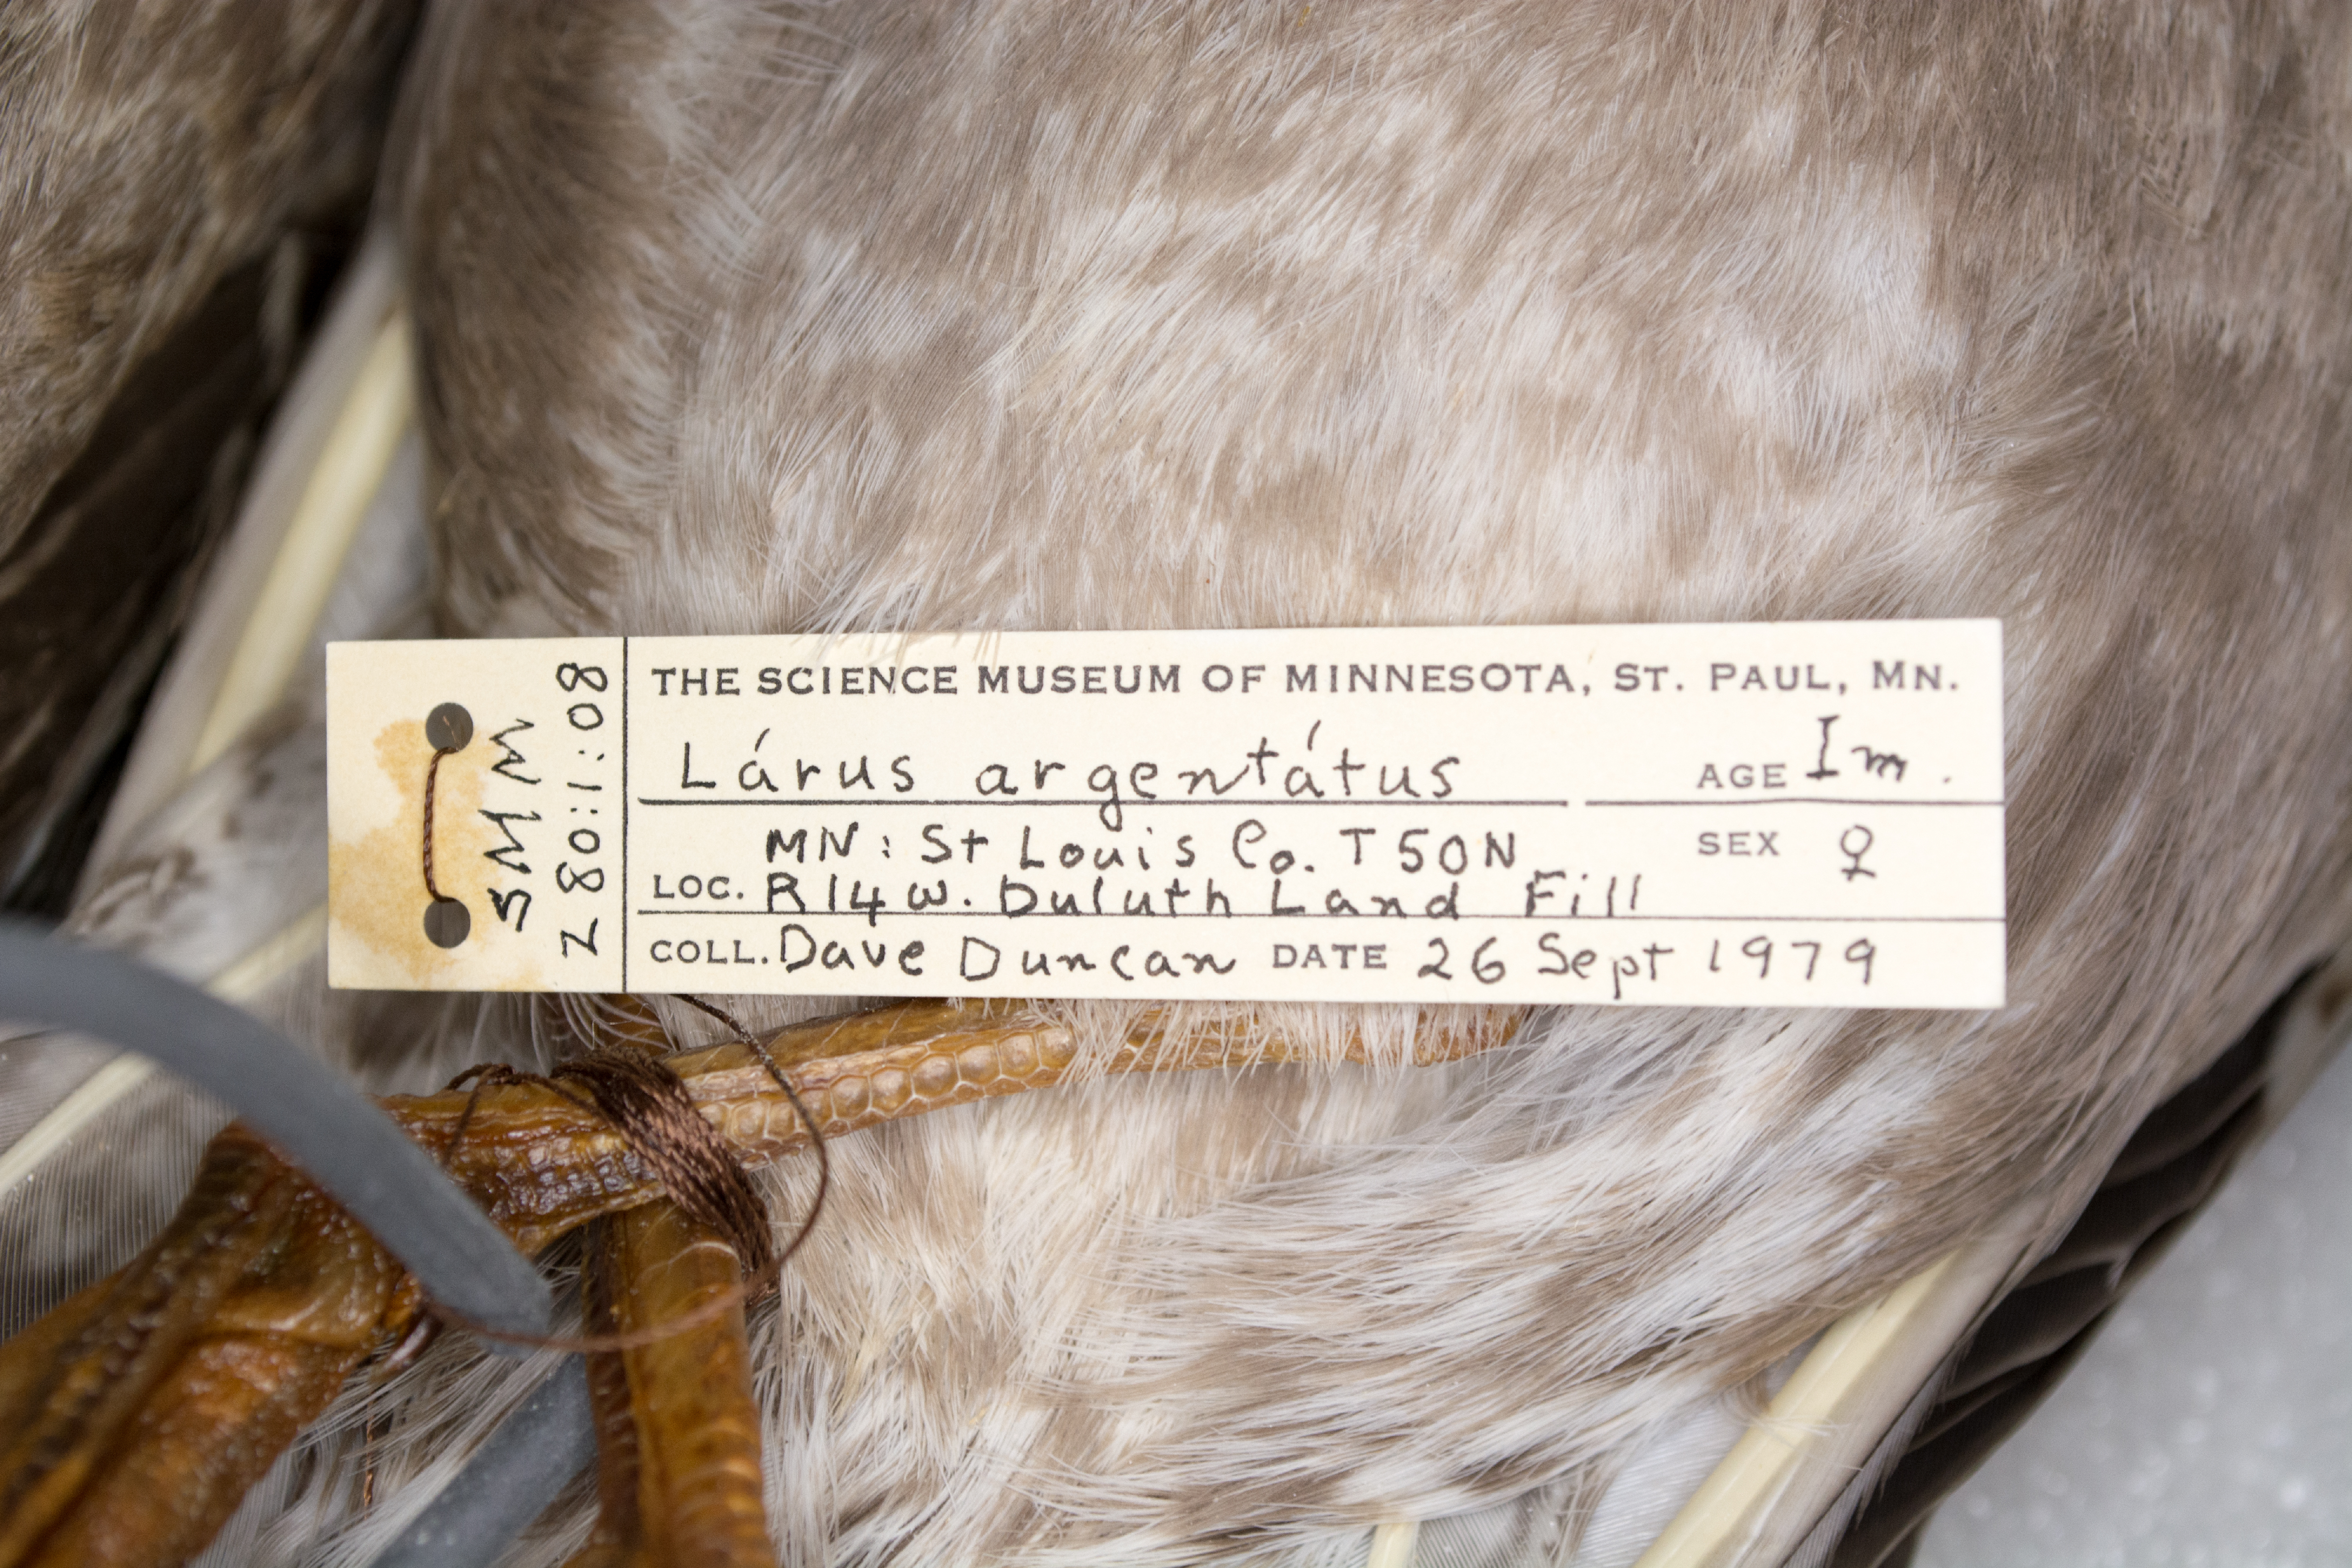 SMM
Z 80:1:08
THE SCIENCE MUSEUM OF MINNESOTA, ST. PAUL, MN.
Lárus argentátus AGE Im.
MN: St Louis Co. T50N SEX ♀
LOC. R14W. Duluth Land Fill
COLL. Dave Duncan DATE 26 Sept 1979